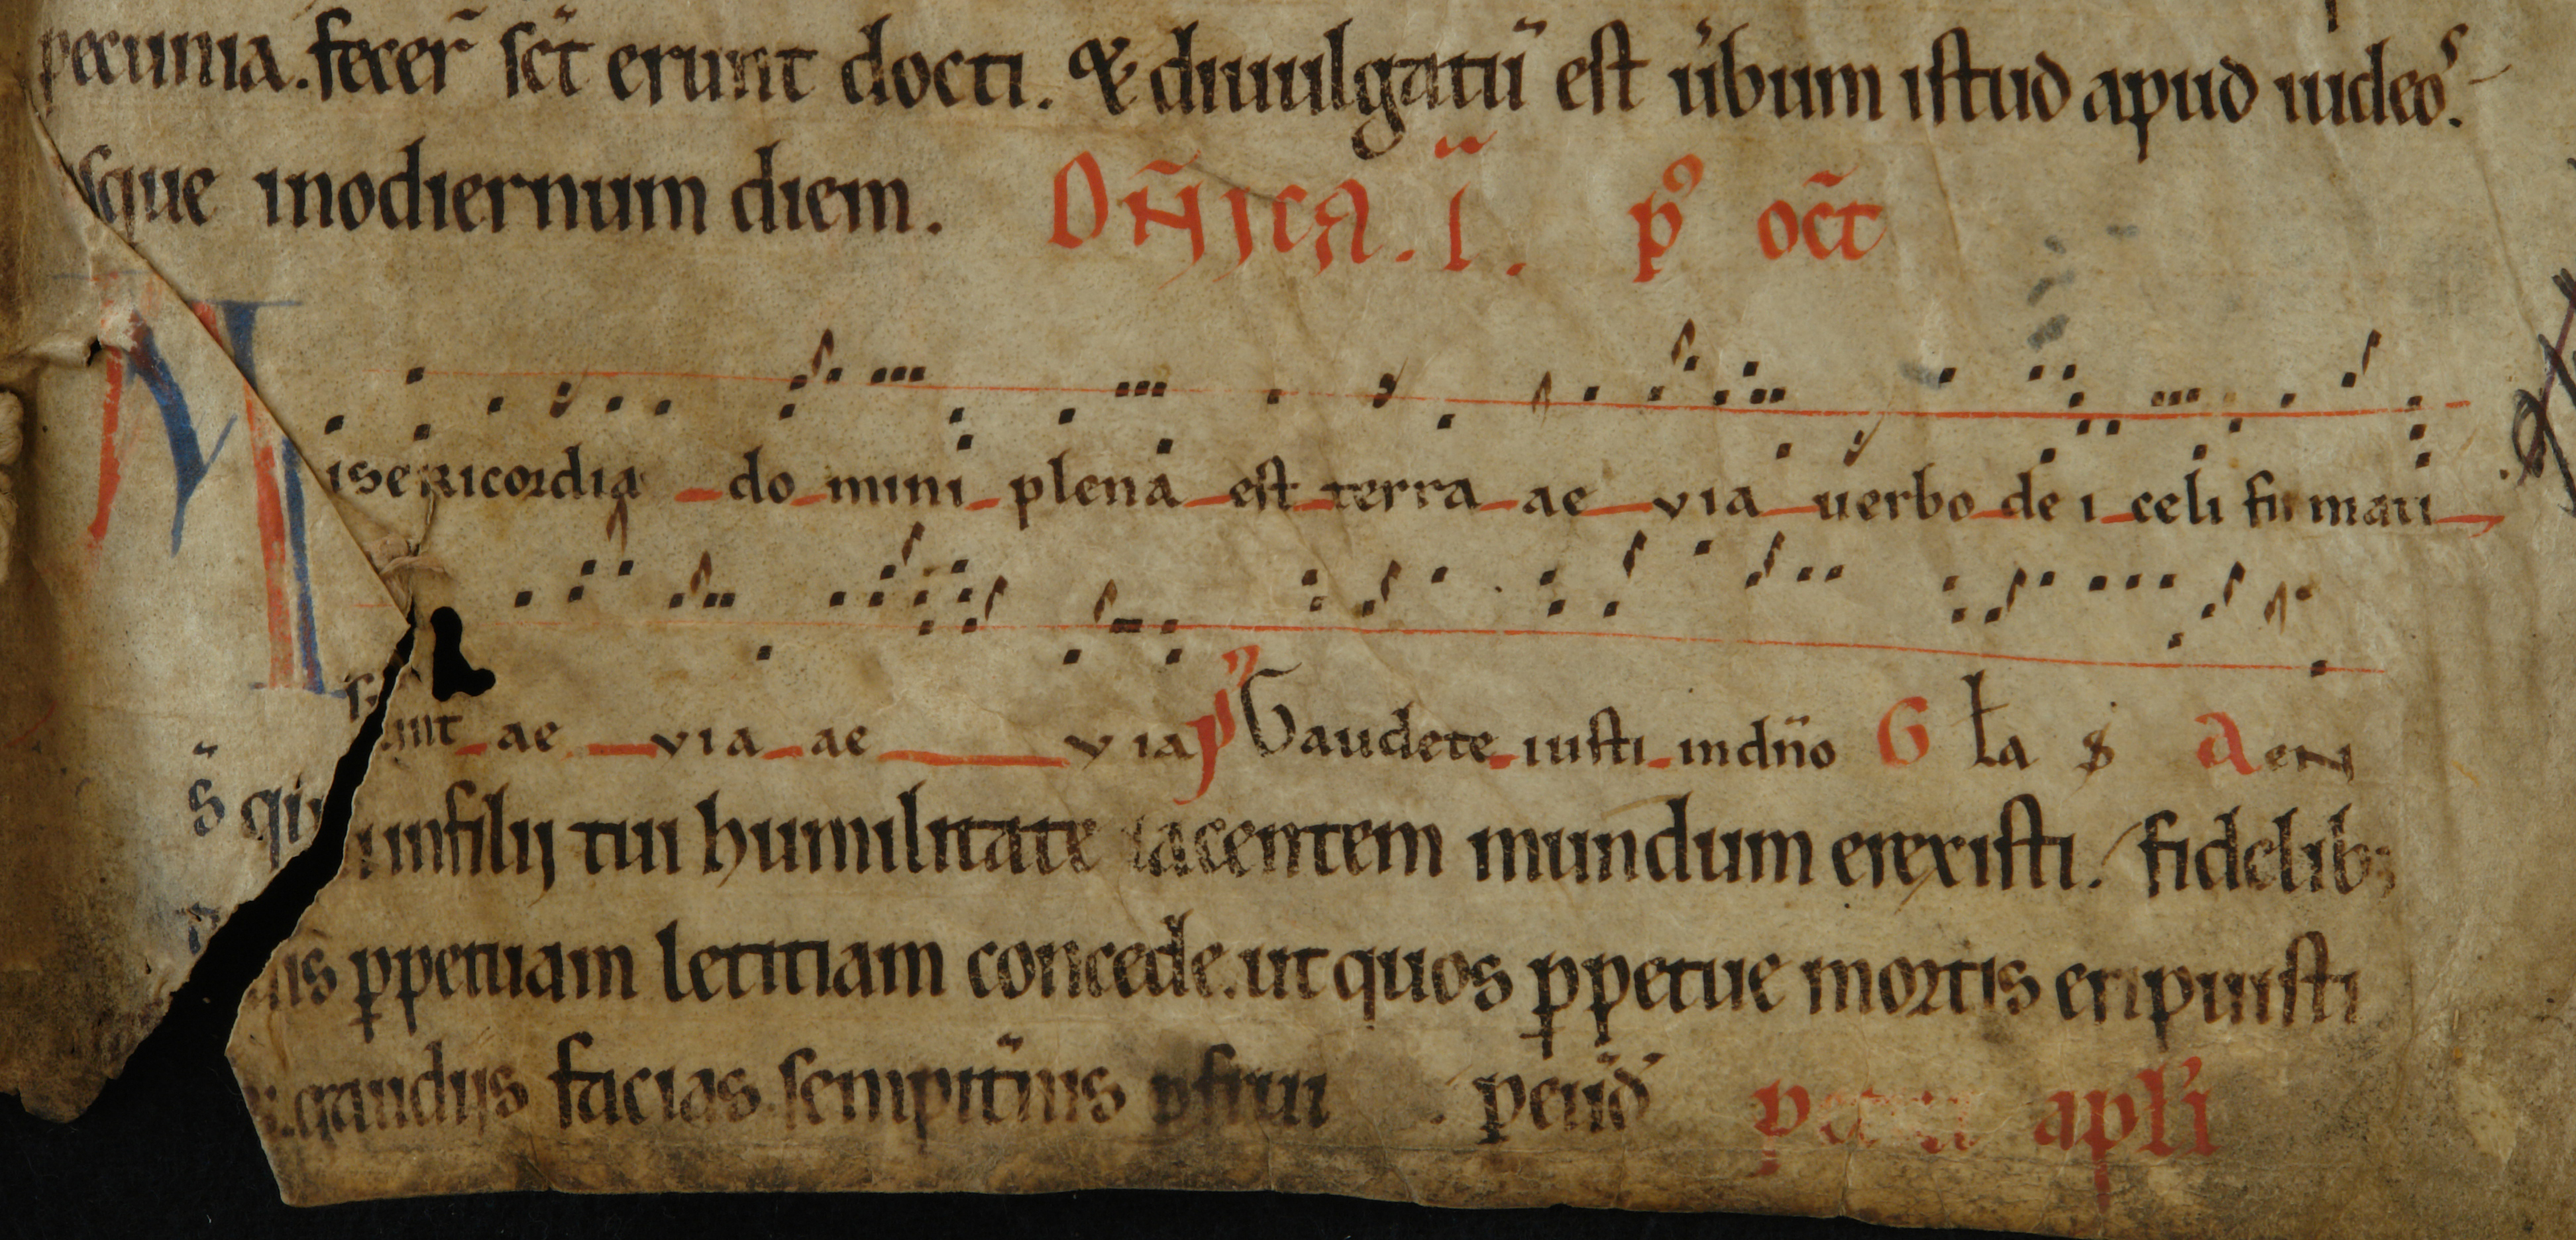 pecunia. fecer̄ sc̄t erunt docti. & diuulgatū est u̓bum istud apud iudeoˢ.
sque inodiernum diem. Dn̄ica. i. pꝰ oct̄
Misericordia do mini plena est terra ae via uerbo de i celi fir mati
sunt ae via ae via pꝰ Gaudete iusti in dn̄o G ła s aeN
s̄ qui infilij tui humilitate iacentem mundum erexisti. fidelibꝫ
uis ꝑpetuam letitiam concede. ut quos ꝑpetue mortis eripuisti
gaudijs facias sempit̓nis ꝑfrui . peūd apłi